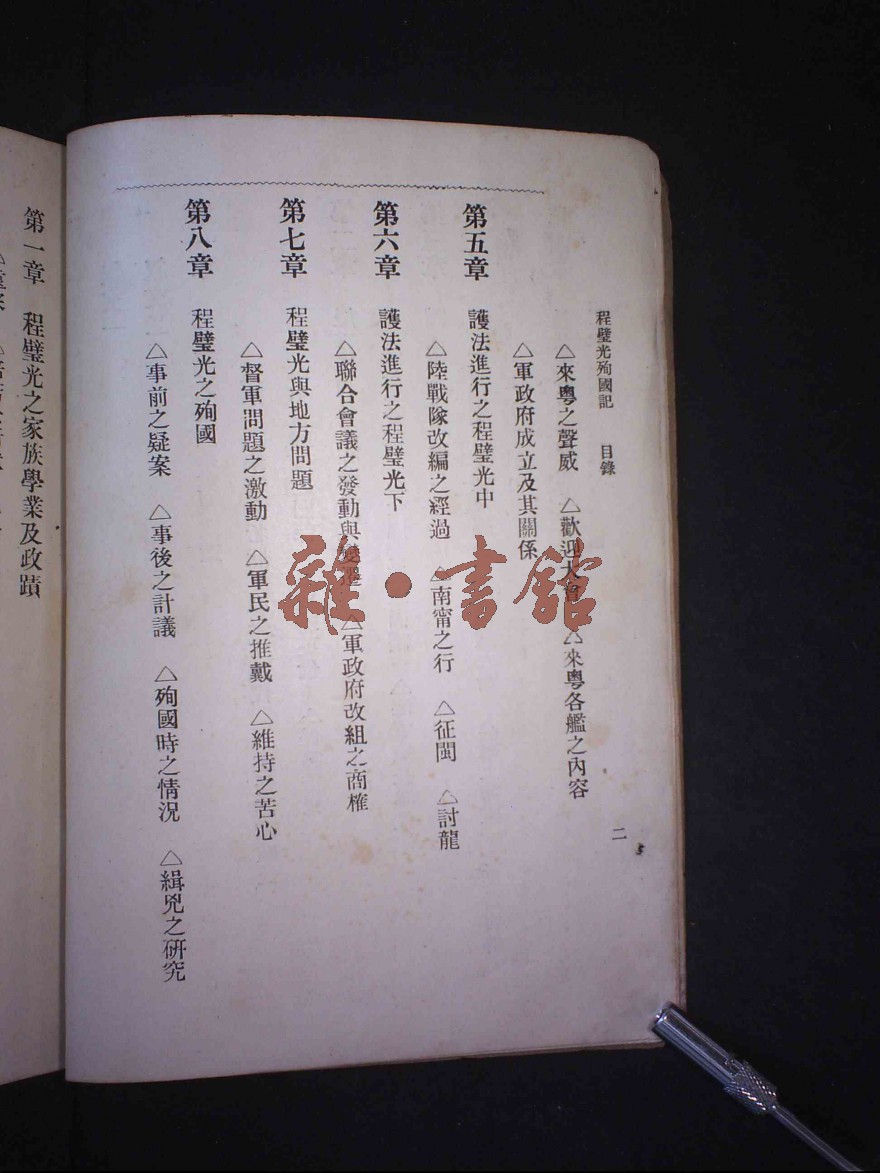 程璧光殉國記　目錄　二
△來粵之聲威　△歡迎大會　△來粵各艦之內容
△軍政府成立及其關係
第五章　護法進行之程璧光中
△陸戰隊改編之經過　△南甯之行　△征閩　△討龍
第六章　護法進行之程璧光下
△聯合會議之發動與　△軍政府改組之商榷
第七章　程璧光與地方問題
△督軍問題之激動　△軍民之推戴　△維持之苦心
第八章　程璧光之殉國
△事前之疑案　△事後之計議　△殉國時之情況　△緝兇之研究
第一章　程璧光之家族學業及政蹟
雜·書館